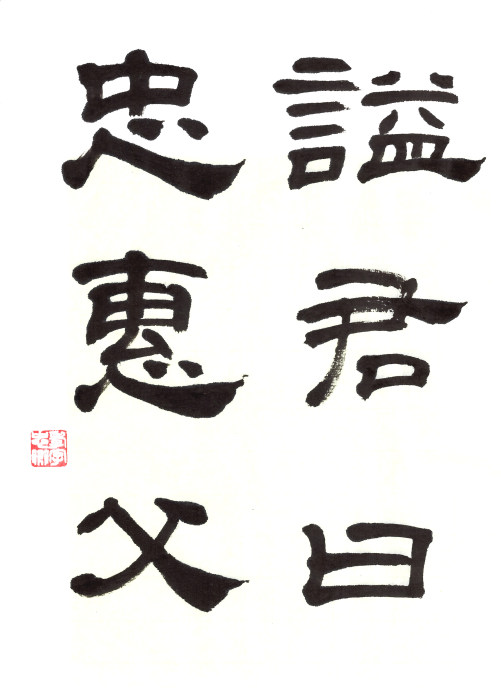 謚君曰
忠惠父